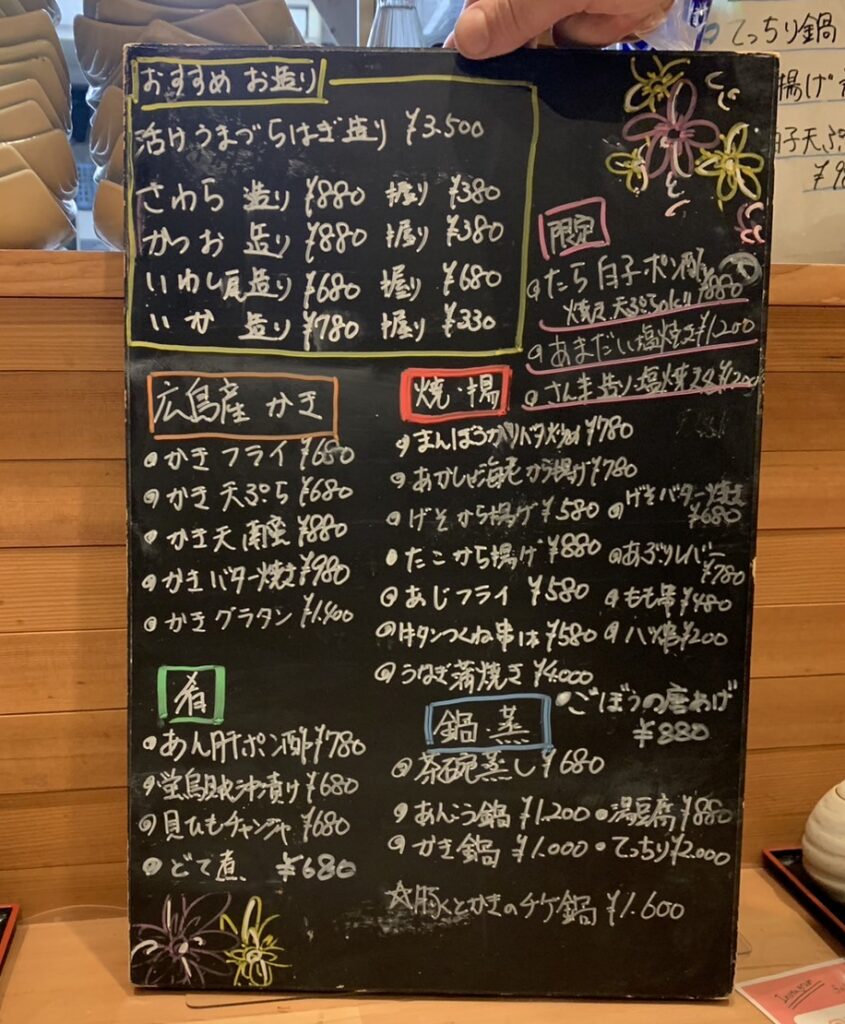 おすすめ お造り
活けうまづらはぎ造り ¥3.500
さわら 造り ¥880 握り ¥380
かつお 造り ¥880 握り ¥380
いわし 造り ¥680 握り ¥680
いか 造り ¥780 握り ¥330
限定
たら白子ポン酢 ¥880
天ぷら
あまだい塩焼き ¥1.200
さんま造り・塩焼
広島産 かき
かきフライ ¥680
かき天ぷら ¥680
かき天 ¥880
かきバター焼き ¥980
かきグラタン ¥1.400
焼・揚
まんぼう ¥780
海老から揚げ ¥780
げそから揚げ ¥580
げそバター焼き ¥680
たこから揚げ ¥880
あぶりレバー ¥780
あじフライ ¥580
もも串 ¥480
牛タンつくね串 ¥580
¥200
うなぎ蒲焼き ¥4.000
ごぼうの唐あげ ¥880
肴
あん肝ポン酢 ¥780
漬け ¥680
貝ひもチャンジャ ¥680
どて煮 ¥680
鍋・蒸
茶碗蒸し ¥680
あんこう鍋 ¥1.200
湯豆腐 ¥880
かき鍋 ¥1.000
てっちり ¥2.000
☆豚とかきのチゲ鍋 ¥1.600
てっちり鍋
揚げ
白子天ぷら